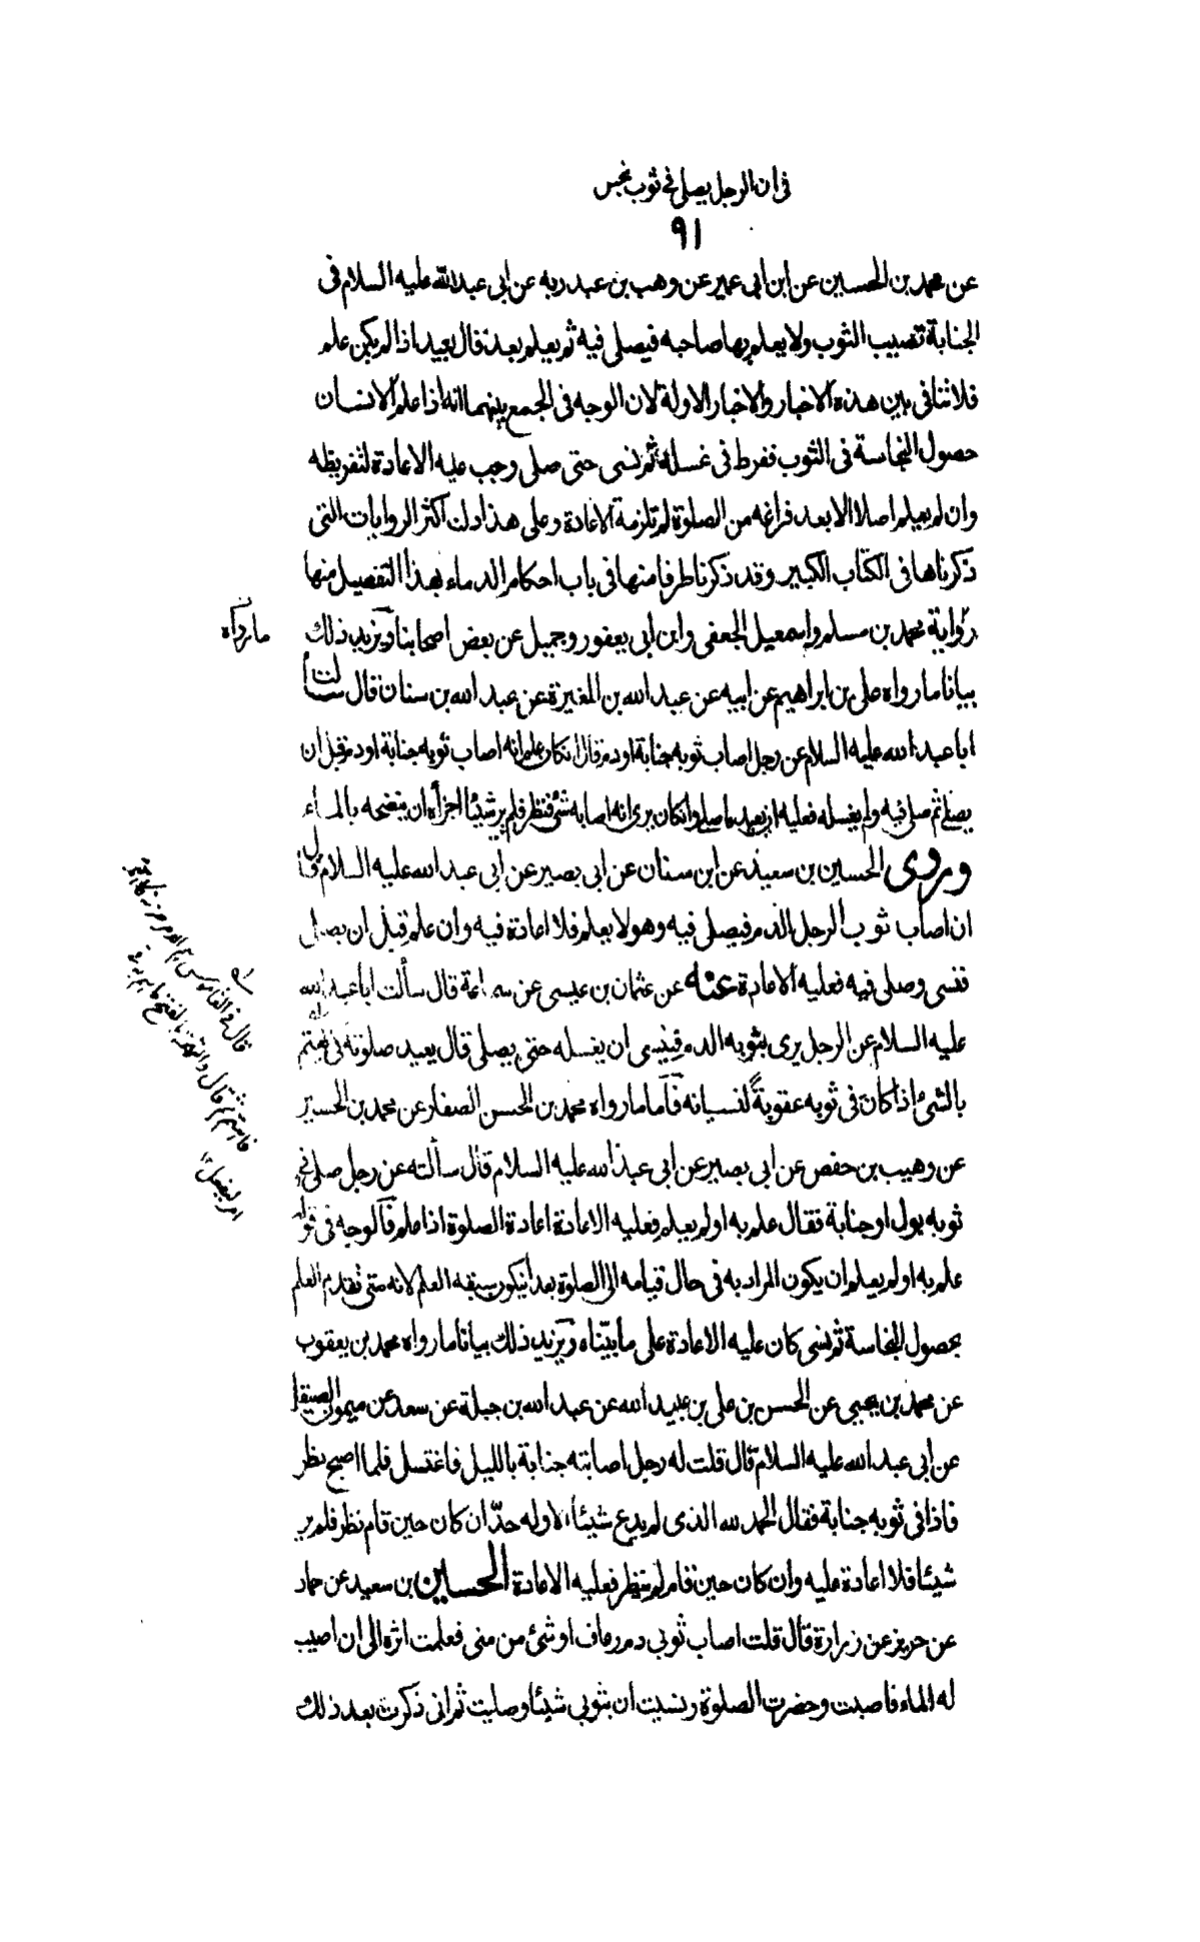 فى ان الرجل يصلى فى ثوب نجس
٩١
عن محمد بن الحسين عن ابن ابى عمير عن وهب بن عبد ربه عن ابى عبد الله عليه السلام فى
الجنابة تصيب الثوب ولا يعلم بها صاحبه فيصلى فيه ثم يعلم بعد قال يعيد اذا لم يكن علم
فلا تنافى بين هذه الاخبار والاخبار الاولة لان الوجه فى الجمع بينهما انه اذا علم الانسان
حصول النجاسة فى الثوب ففرط فى غسله ثم نسى حتى صلى وجب عليه الاعادة لتفريطه
وان لم يعلم اصلا الا بعد فراغه من الصلوة لم تلزمه الاعادة وعلى هذا دلت اكثر الروايات التى
ذكرناها فى الكتاب الكبير وقد ذكرنا طرفا منها فى باب احكام الدماء بهذا التفصيل منها
رواية محمد بن مسلم واسمعيل الجعفى وابن ابى يعفور وجميل عن بعض اصحابنا ويزيد ذلك
بيانا ما رواه على بن ابراهيم عن ابيه عن عبد الله بن المغيرة عن عبد الله بن سنان قال سألت
ابا عبد الله عليه السلام عن رجل اصاب ثوبه جنابة او دم قال ان كان علم انه اصاب ثوبه جنابة او دم قبل ان
يصلى ثم صلى فيه ولم يغسله فعليه ان يعيد ما صلى وان كان يرى انه اصابه شئ فنظر فلم ير شيئا اجزأه ان ينضحه بالماء
وروى الحسين بن سعيد عن ابن سنان عن ابى بصير عن ابى عبد الله عليه السلام قال
ان اصاب ثوب الرجل الدم فيصلى فيه وهو لا يعلم فلا اعادة فيه وان علم قبل ان يصلى
فنسى وصلى فيه فعليه الاعادة عنه عن عثمان بن عيسى عن سماعة قال سألت ابا عبد الله
عليه السلام عن الرجل يرى بثوبه الدم فينسى ان يغسله حتى يصلى قال يعيد صلوته كى يهتم
بالشئ اذا كان فى ثوبه عقوبة لنسيانه فاما ما رواه محمد بن الحسن الصفار عن محمد بن الحسين
عن وهيب بن حفص عن ابى بصير عن ابى عبد الله عليه السلام قال سألته عن رجل صلى فى
ثوبه بول او جنابة فقال علم به او لم يعلم فعليه الاعادة اعادة الصلوة اذا علم فالوجه فى قوله
علم به او لم يعلم ان يكون المراد به فى حال قيامه الى الصلوة بعد ان يكون سبقه العلم لانه متى تقدم العلم
بحصول النجاسة ثم نسى كان عليه الاعادة على ما بيناه ويزيد ذلك بيانا ما رواه محمد بن يعقوب
عن محمد بن يحيى عن الحسن بن على بن عبد الله عن عبد الله بن جبلة عن سعد عن ميمون الصيقل
عن ابى عبد الله عليه السلام قال قلت له رجل اصابته جنابة بالليل فاغتسل فلما اصبح نظر
فاذا فى ثوبه جنابة فقال الحمد لله الذى لم يدع شيئا الا وله حدّ ان كان حين قام نظر فلم ير
شيئا فلا اعادة عليه وان كان حين قام لم ينظر فعليه الاعادة الحسين بن سعيد عن حماد
عن حريز عن زرارة قال قلت اصاب ثوبى دم رعاف او شئ من منى فعلمت اثره الى ان اصيب
له الماء فاصبت وحضرت الصلوة ونسيت ان بثوبى شيئا وصليت ثم انى ذكرت بعد ذلك
قال فى القاموس